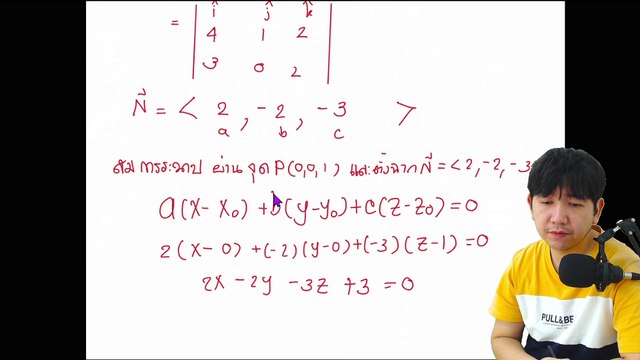 î ĵ k̂
= | 4 1 2 |
3 0 2
N⃗ = < 2, -2, -3 >
a b c
สมการระนาบ ผ่าน จุด P(0,0,1) และตั้งฉาก N⃗ = <2, -2, -3
a(x-x₀) + b(y-y₀) + c(z-z₀) = 0
2(x-0) + (-2)(y-0) + (-3)(z-1) = 0
2x - 2y - 3z + 3 = 0
PULL&BE